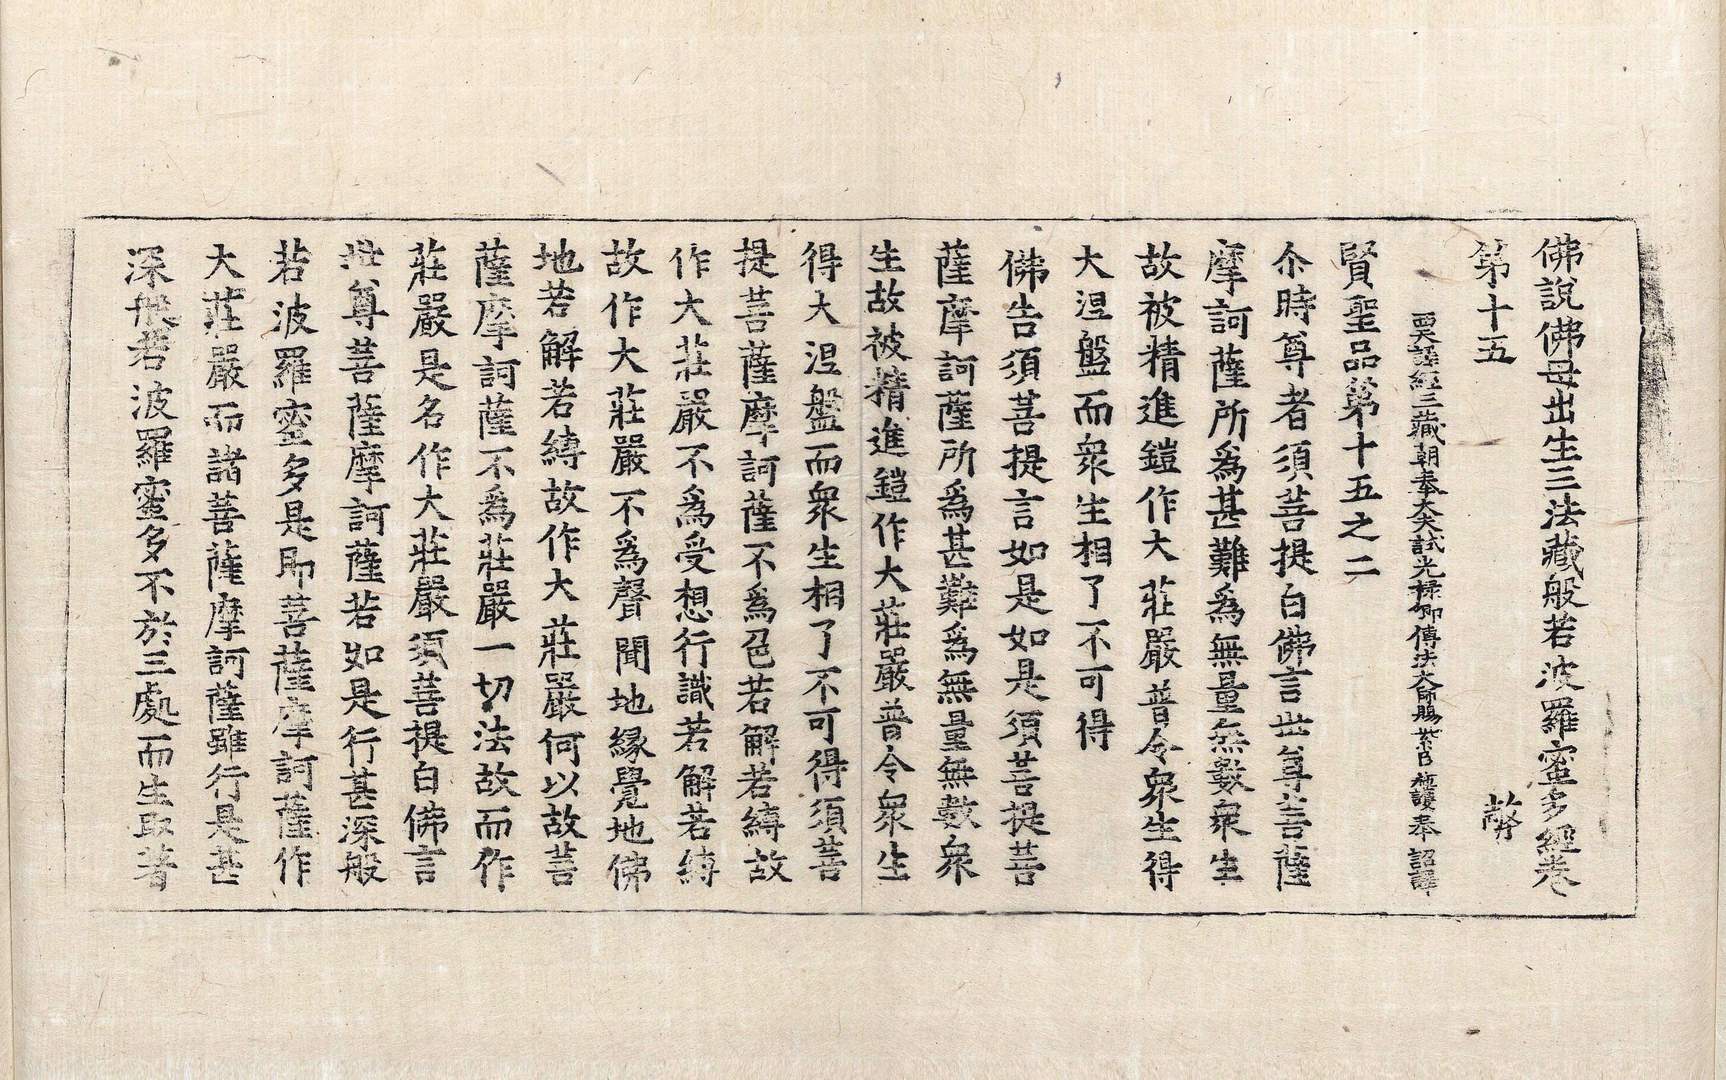 佛說佛母出生三法藏般若波羅蜜多經卷
第十五　弊
西天譯經三藏朝奉大夫試光祿卿傳法大師賜紫臣施護奉 詔譯
賢聖品第十五之二
尒時尊者須菩提白佛言世尊菩薩
摩訶薩所爲甚難爲無量無數衆生
故被精進鎧作大莊嚴普令衆生得
大涅盤而衆生相了不可得
佛告須菩提言如是如是須菩提菩
薩摩訶薩所爲甚難爲無量無數衆
生故被精進鎧作大莊嚴普令衆生
得大涅盤而衆生相了不可得須菩
提菩薩摩訶薩不爲色若解若縛故
作大莊嚴不爲受想行識若解若縛
故作大莊嚴不爲聲聞地緣覺地佛
地若解若縛故作大莊嚴何以故菩
薩摩訶薩不爲莊嚴一切法故而作
莊嚴是名作大莊嚴須菩提白佛言
世尊菩薩摩訶薩若如是行甚深般
若波羅蜜多是即菩薩摩訶薩作
大莊嚴而諸菩薩摩訶薩雖行是甚
深般若波羅蜜多不於三處而生取著